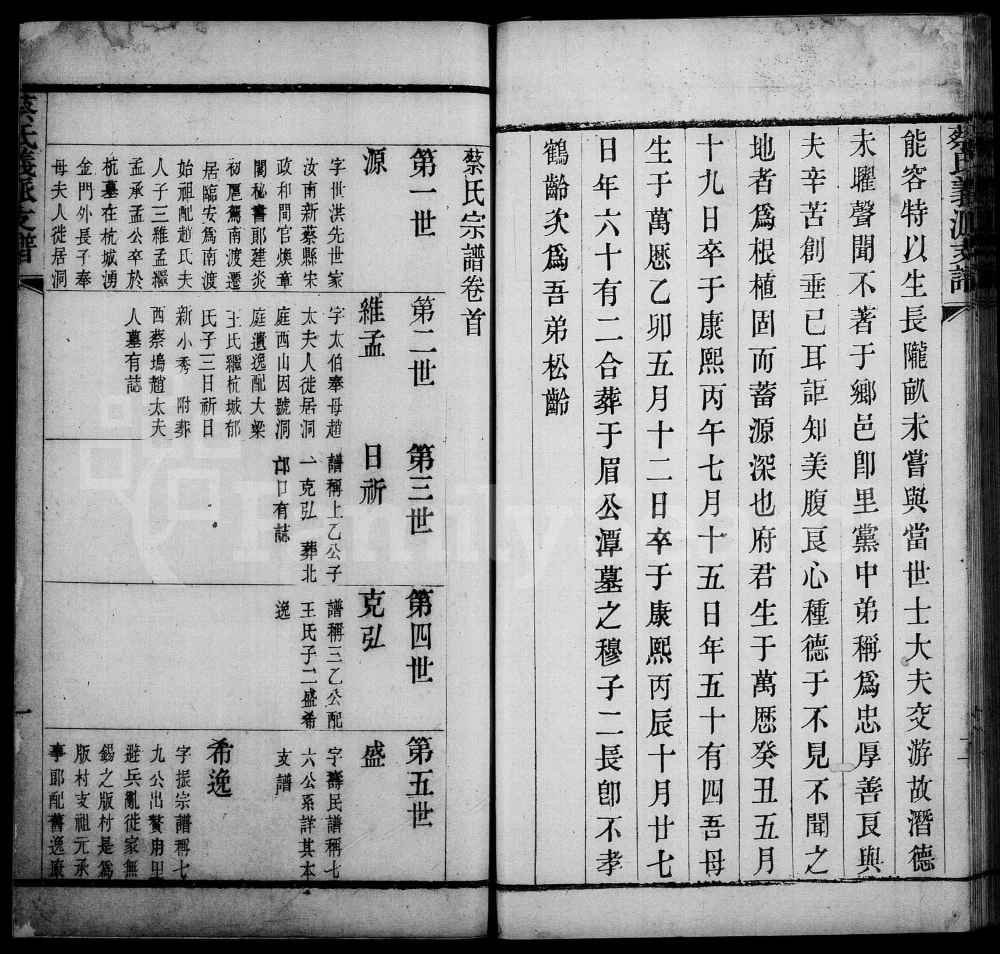 蔡氏義派支譜
能容特以生長隴畝未嘗與當世士大夫交游故潛德
未曜聲聞不著于鄉邑卽里黨中弟稱爲忠厚善良與
夫辛苦創垂已耳詎知美腹良心種德于不見不聞之
地者爲根植固而蓄源深也府君生于萬厯癸丑五月
十九日卒于康熙丙午七月十五日年五十有四吾母
生于萬厯乙卯五月十二日卒于康熙丙辰十月廿七
日年六十有二合葬于眉公潭墓之穆子二長卽不孝
鶴齡次爲吾弟松齡
蔡氏宗譜卷首
第一世
源
字世洪先世家
汝南新蔡縣宋
政和間官煥章
閣秘書郞建炎
初扈駕南渡遷
居臨安爲南渡
始祖配趙氏夫
人子三維孟繼
孟承孟公卒於
杭墓在杭城湧
金門外長子奉
母夫人徙居洞
第二世
維孟
字太伯奉母趙
太夫人徙居洞
庭西山因號洞
庭遺逸配大梁
王氏繼杭城郁
氏子三日祈日
新小秀附葬
西蔡塢趙太夫
人墓有誌
第三世
日祈
譜稱上乙公子
一克弘葬北
邙口有誌
第四世
克弘
譜稱三乙公配
王氏子二盛希
逸
第五世
盛
字壽民譜稱七
六公系詳其本
支譜
希逸
字振宗譜稱七
九公出贅甪里
避兵亂徙家無
錫之版村是爲
版村支祖元承
事郞配舊逸廉
蔡氏義派支譜
一